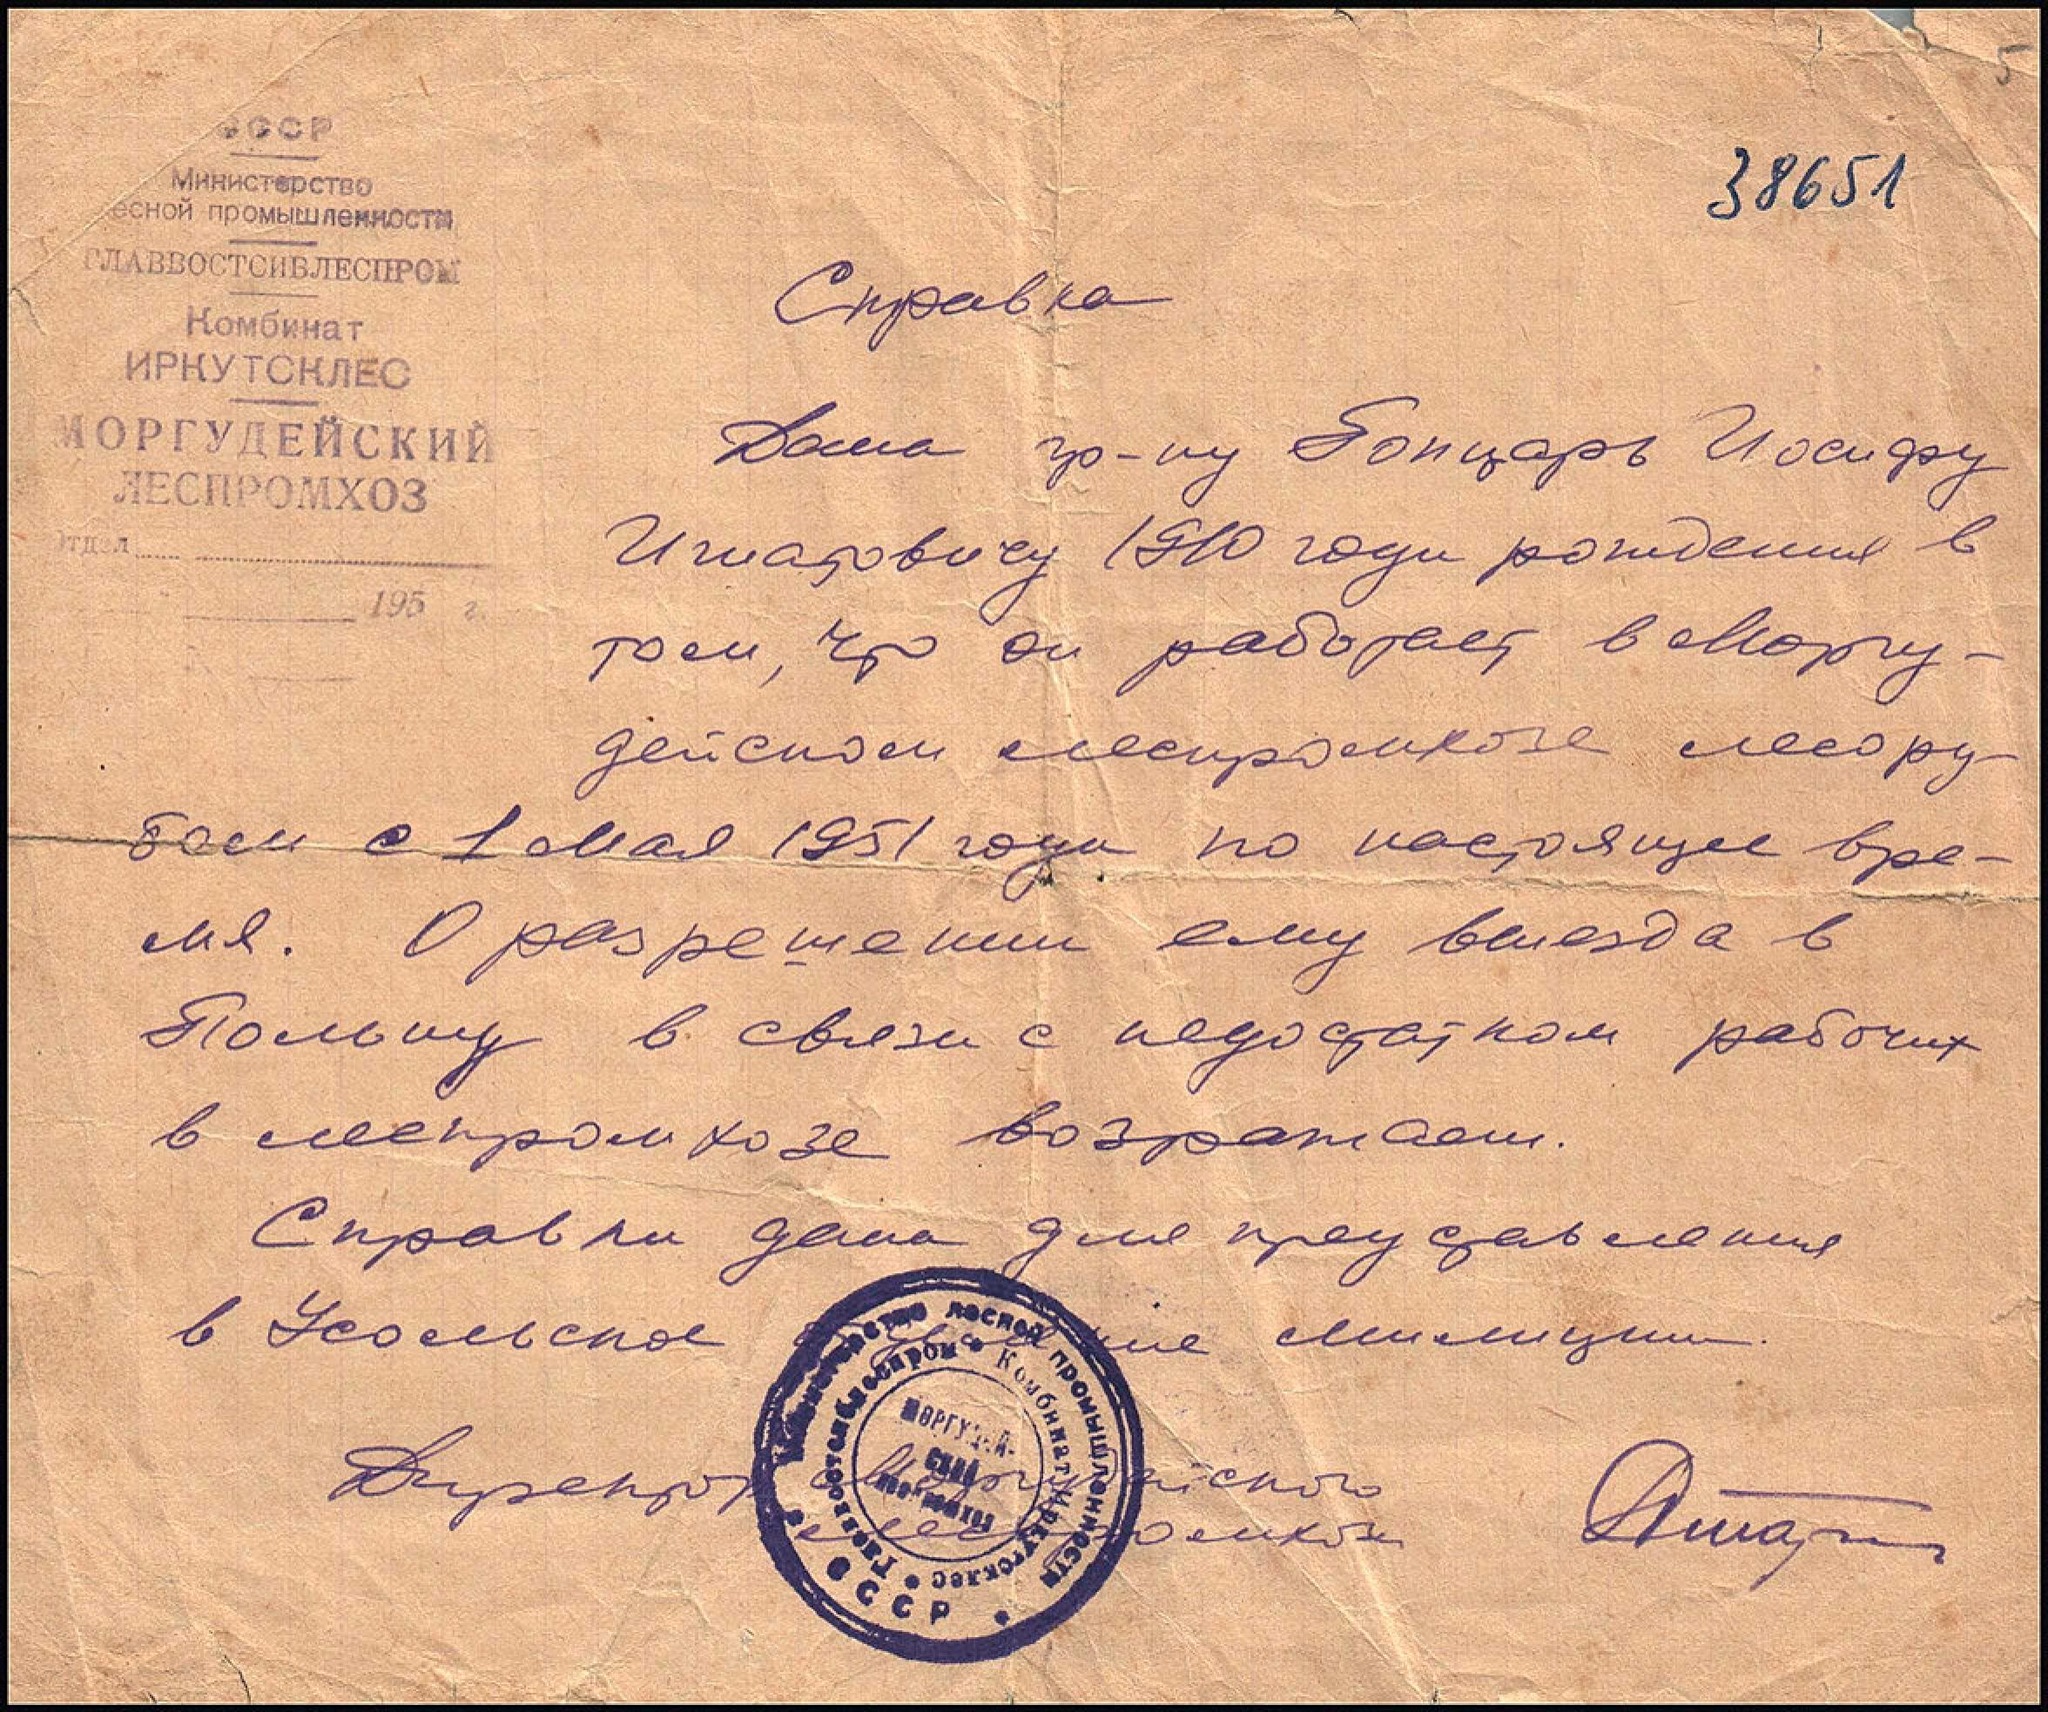 5
38651
СССР
Министерство
лесной промышленности
ГЛАВВОСТСИБЛЕСПРОМ
Комбинат
ИРКУТСКЛЕС
МОРГУДЕЙСКИЙ
ЛЕСПРОМХОЗ
Отдел
195 г.
Справка
Дана гр-ну Гонцарь Иосифу
Игнатовичу 1910 года рождения в
том, что он работает в Моргу-
дейском леспромхозе лесору-
бом с 1 мая 1951 года по настоящее вре-
мя. О разрешении ему выезда в
Польшу в связи с недостатком рабочих
в леспромхозе возражаем.
Справка дана для представления
в Усольское милиции.
Директор Моргудейского
леспромхоза
Министерство лесной промышленности СССР
Главвостсиблеспром Комбинат Иркутсклес
МОРГУДЕЙ-
СКИЙ
леспромхоз